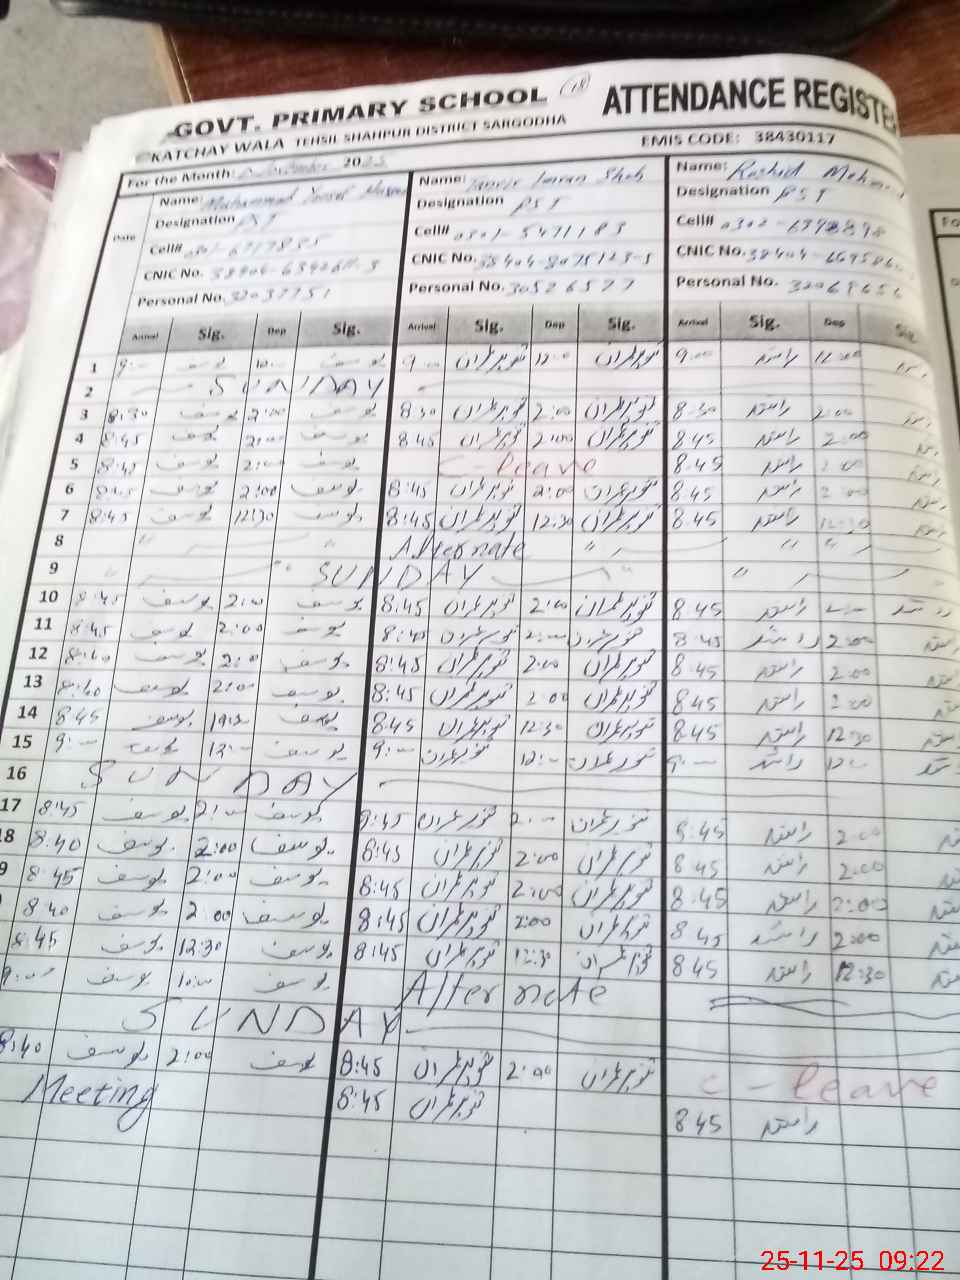 GOVT. PRIMARY SCHOOL 18 ATTENDANCE REGISTE
KATCHAY WALA TEHSIL SHAHPUR DISTRICT SARGODHA EMIS CODE: 38430117
For the Month: 2025
Name: Muhammad Name: Imran Shah Name: Rashid
Designation PST Designation PST Designation PST
Cell# Cell# 0301-5471183 Cell# 0302-
CNIC No. CNIC No. 38404-8075123-5 CNIC No. 38404-
Personal No. 32037751 Personal No. 30526577 Personal No.
Date Arrival Sig. Dep Sig. Arrival Sig. Dep Sig. Arrival Sig. Dep Sig
1 9:00 یوسف 12:00 یوسف 9:00 تنویر عمران 12:00 تنویر عمران 9:00 راشد 12:00
2 SUNDAY
3 8:30 یوسف 2:00 یوسف 8:30 تنویر عمران 2:00 تنویر عمران 8:30 راشد 2:00
4 8:45 یوسف 2:00 یوسف 8:45 تنویر عمران 2:00 تنویر عمران 8:45 راشد 2:00
5 8:45 یوسف 2:00 یوسف C-leave 8:45 راشد 2:00
6 یوسف 2:00 یوسف 8:45 تنویر عمران 2:00 تنویر عمران 8:45 راشد 2:00
7 8:45 یوسف 12:30 یوسف 8:45 تنویر عمران 12:30 تنویر عمران 8:45 راشد 12:30
8 " " Alternate " " "
9 " " SUNDAY " "
10 8:45 یوسف 2:00 یوسف 8:45 تنویر عمران 2:00 تنویر عمران 8:45 راشد راشد
11 8:45 یوسف 2:00 یوسف 8:45 تنویر عمران 2:00 تنویر عمران 8:45 راشد 2:00
12 8:40 یوسف 2:00 یوسف 8:45 تنویر عمران 2:00 تنویر عمران 8:45 راشد 2:00
13 8:40 یوسف 2:00 یوسف 8:45 تنویر عمران 2:00 تنویر عمران 8:45 راشد 2:00
14 8:45 یوسف یوسف 8:45 تنویر عمران 12:30 تنویر عمران 8:45 راشد 12:30
15 9:00 یوسف 12:00 یوسف 9:00 تنویر عمران 12:00 تنویر عمران 9:00 راشد 12:00
16 SUNDAY
17 8:45 یوسف 2:00 یوسف 8:45 تنویر عمران 2:00 تنویر عمران 8:45 راشد 2:00
18 8:40 یوسف 2:00 یوسف 8:45 تنویر عمران 2:00 تنویر عمران 8:45 راشد 2:00
9 8:45 یوسف 2:00 یوسف 8:45 تنویر عمران 2:00 تنویر عمران 8:45 راشد 2:00
8:40 یوسف 2:00 یوسف 8:45 تنویر عمران 2:00 تنویر عمران 8:45 راشد 2:00
8:45 یوسف 12:30 یوسف 8:45 تنویر عمران 12:30 تنویر عمران 8:45 راشد 12:30
9:00 یوسف یوسف Alternate
SUNDAY
8:40 یوسف 2:00 یوسف 8:45 تنویر عمران 2:00 تنویر عمران C-leave
Meeting 8:45 تنویر عمران 8:45 راشد
25-11-25 09:22